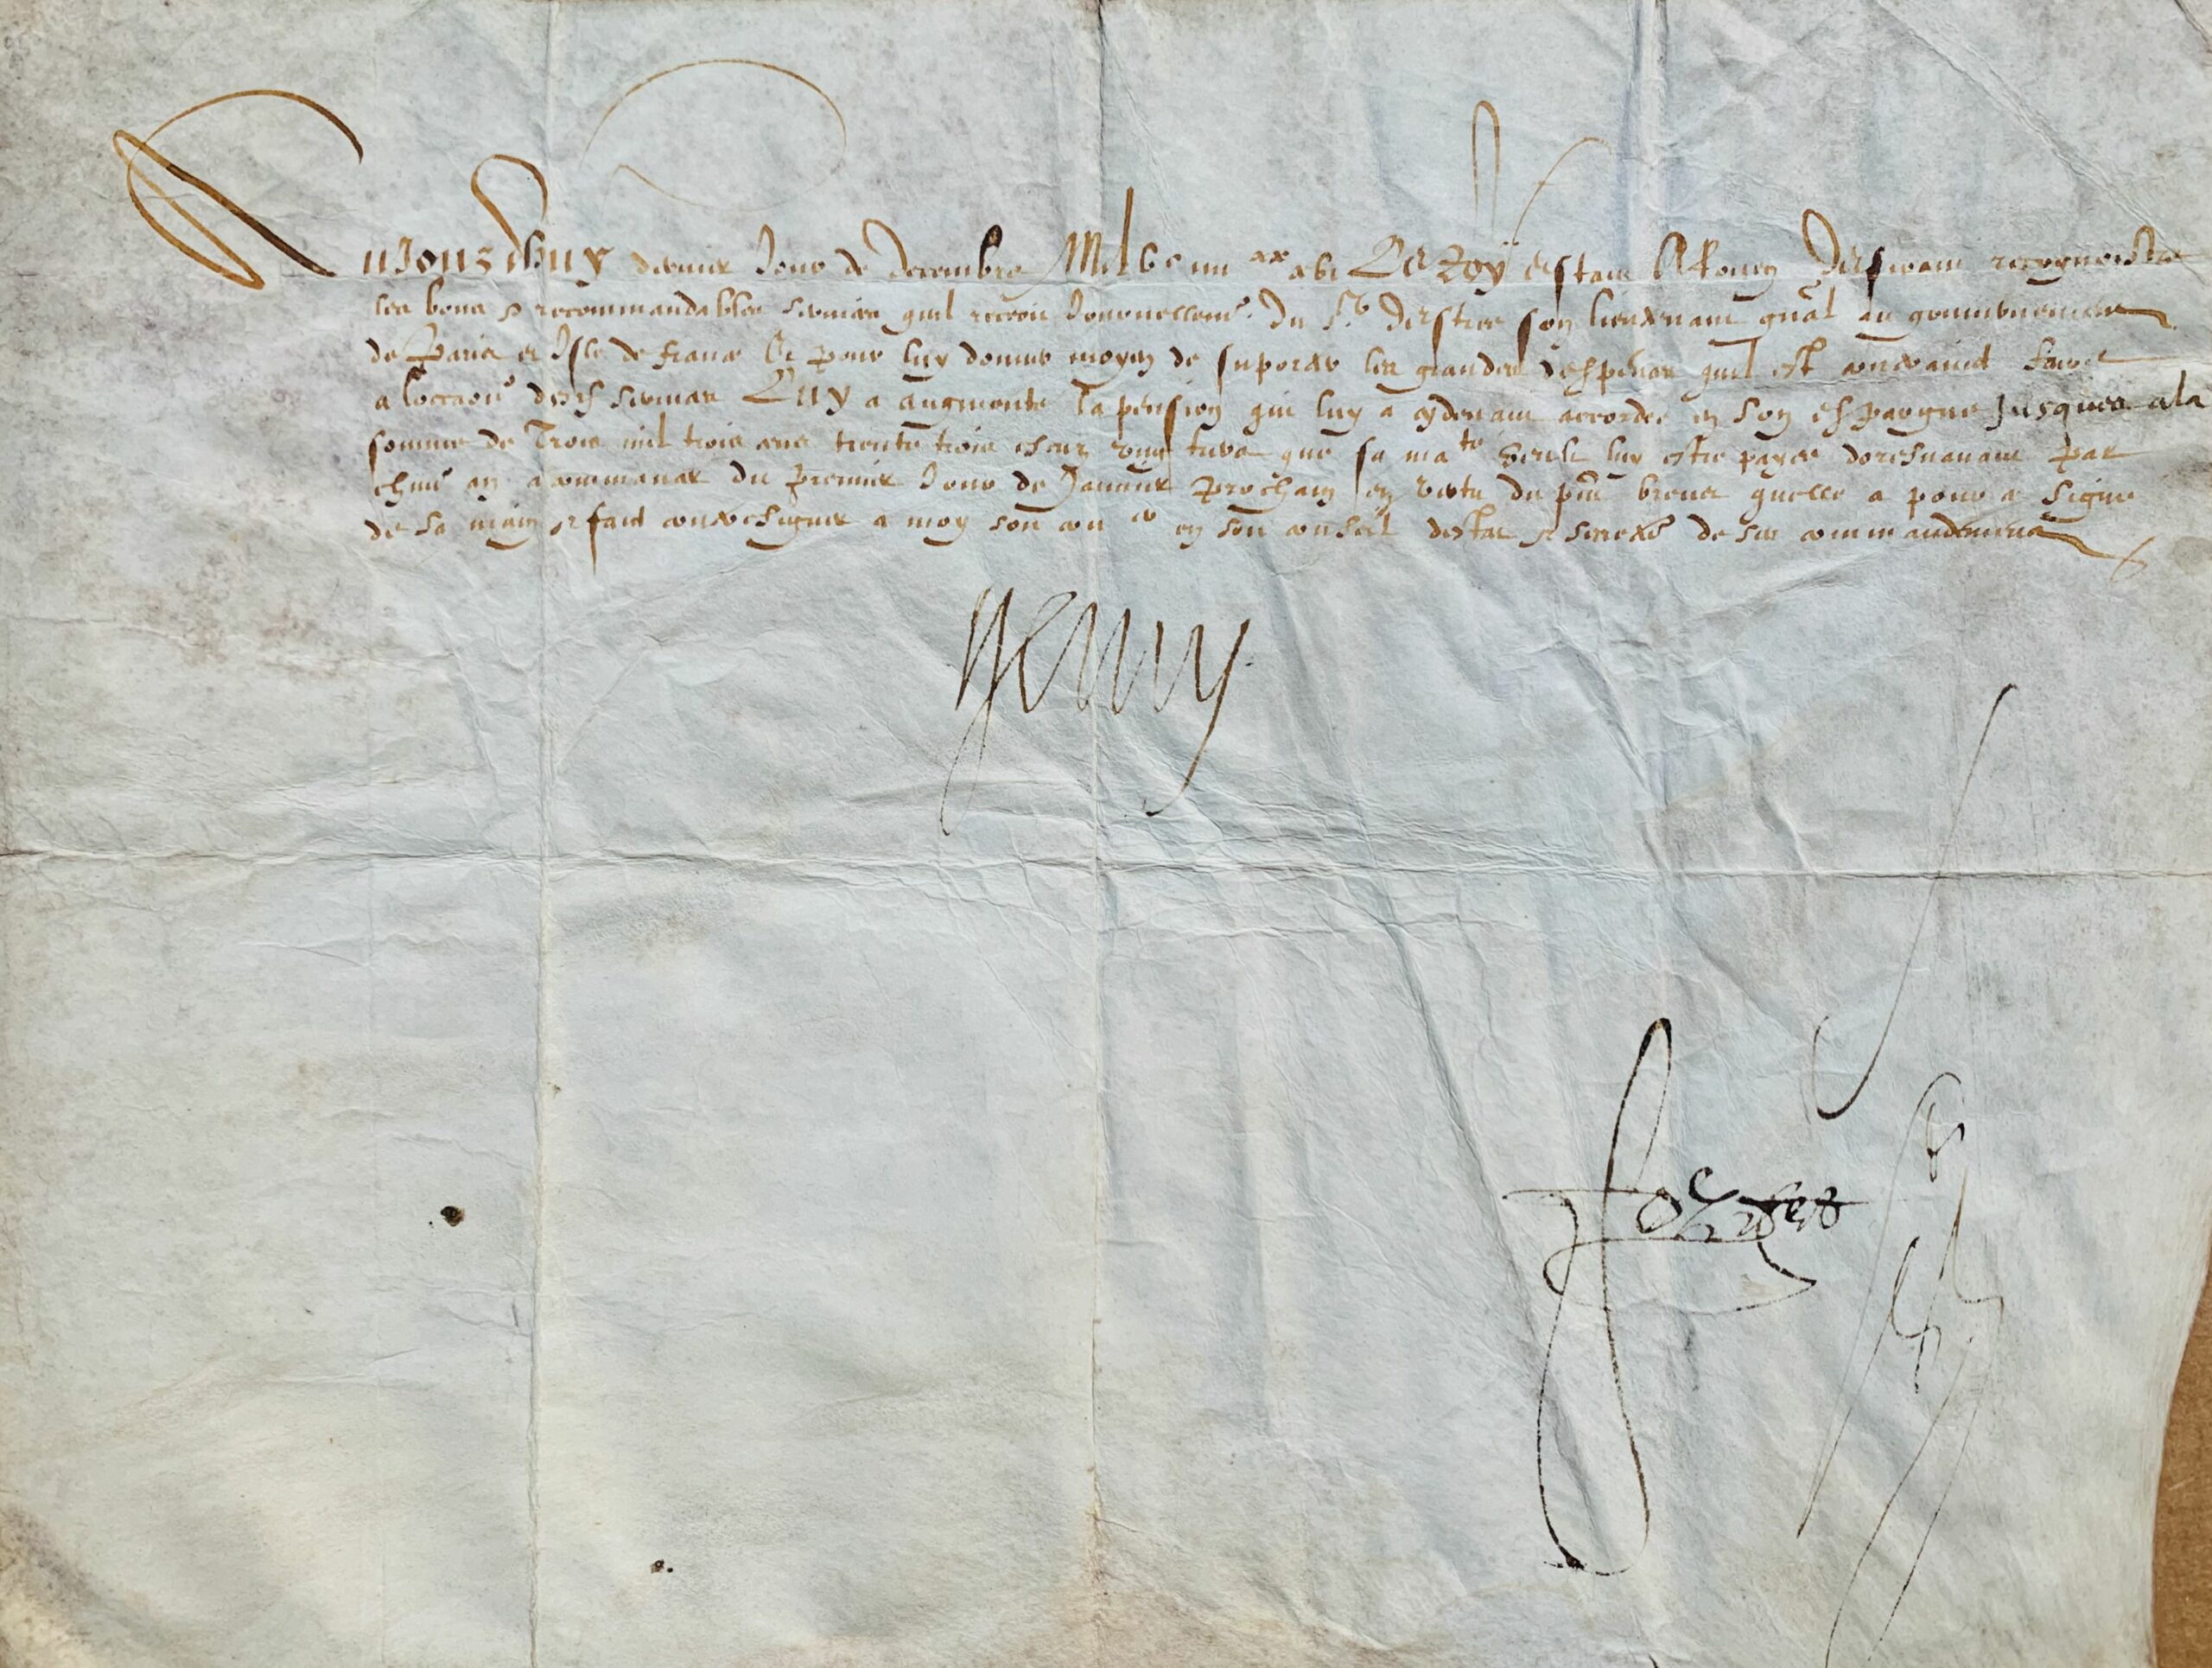 Aujourdhuy dernier Jour de decembre Mil Vc iiii xx xvi Le Roy estant A Rouen Desirant recognoistre
les bons et recommandables services quil recoit Journellemt. Du Sr. Destree son lieutenant gnal au gouvernement
de Paris et Isle de france Et pour luy donner moyen de suporter les grandes despences quil est contrainct faire
a loccaon desd services Luy a augmente la pension qui luy a cydevant accordee en son espargne Jusques a la
somme de Trois mil trois cens trente trois escuz vng tiers que sa mate veult luy estre payee doresnavant par
chun an a commancer du premier Jour de Janvier prochain en vertu du pnt brevet quelle a pour ce signe
de sa main et faict contresigner a moy son conr en son conseil destat et secrere de ses commandemens
Henry
Potier